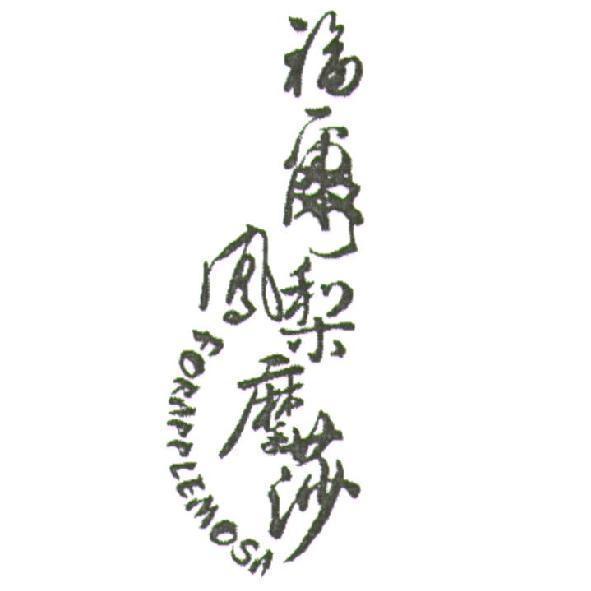 福爾鳳梨摩莎
FORAPPLEMOSA